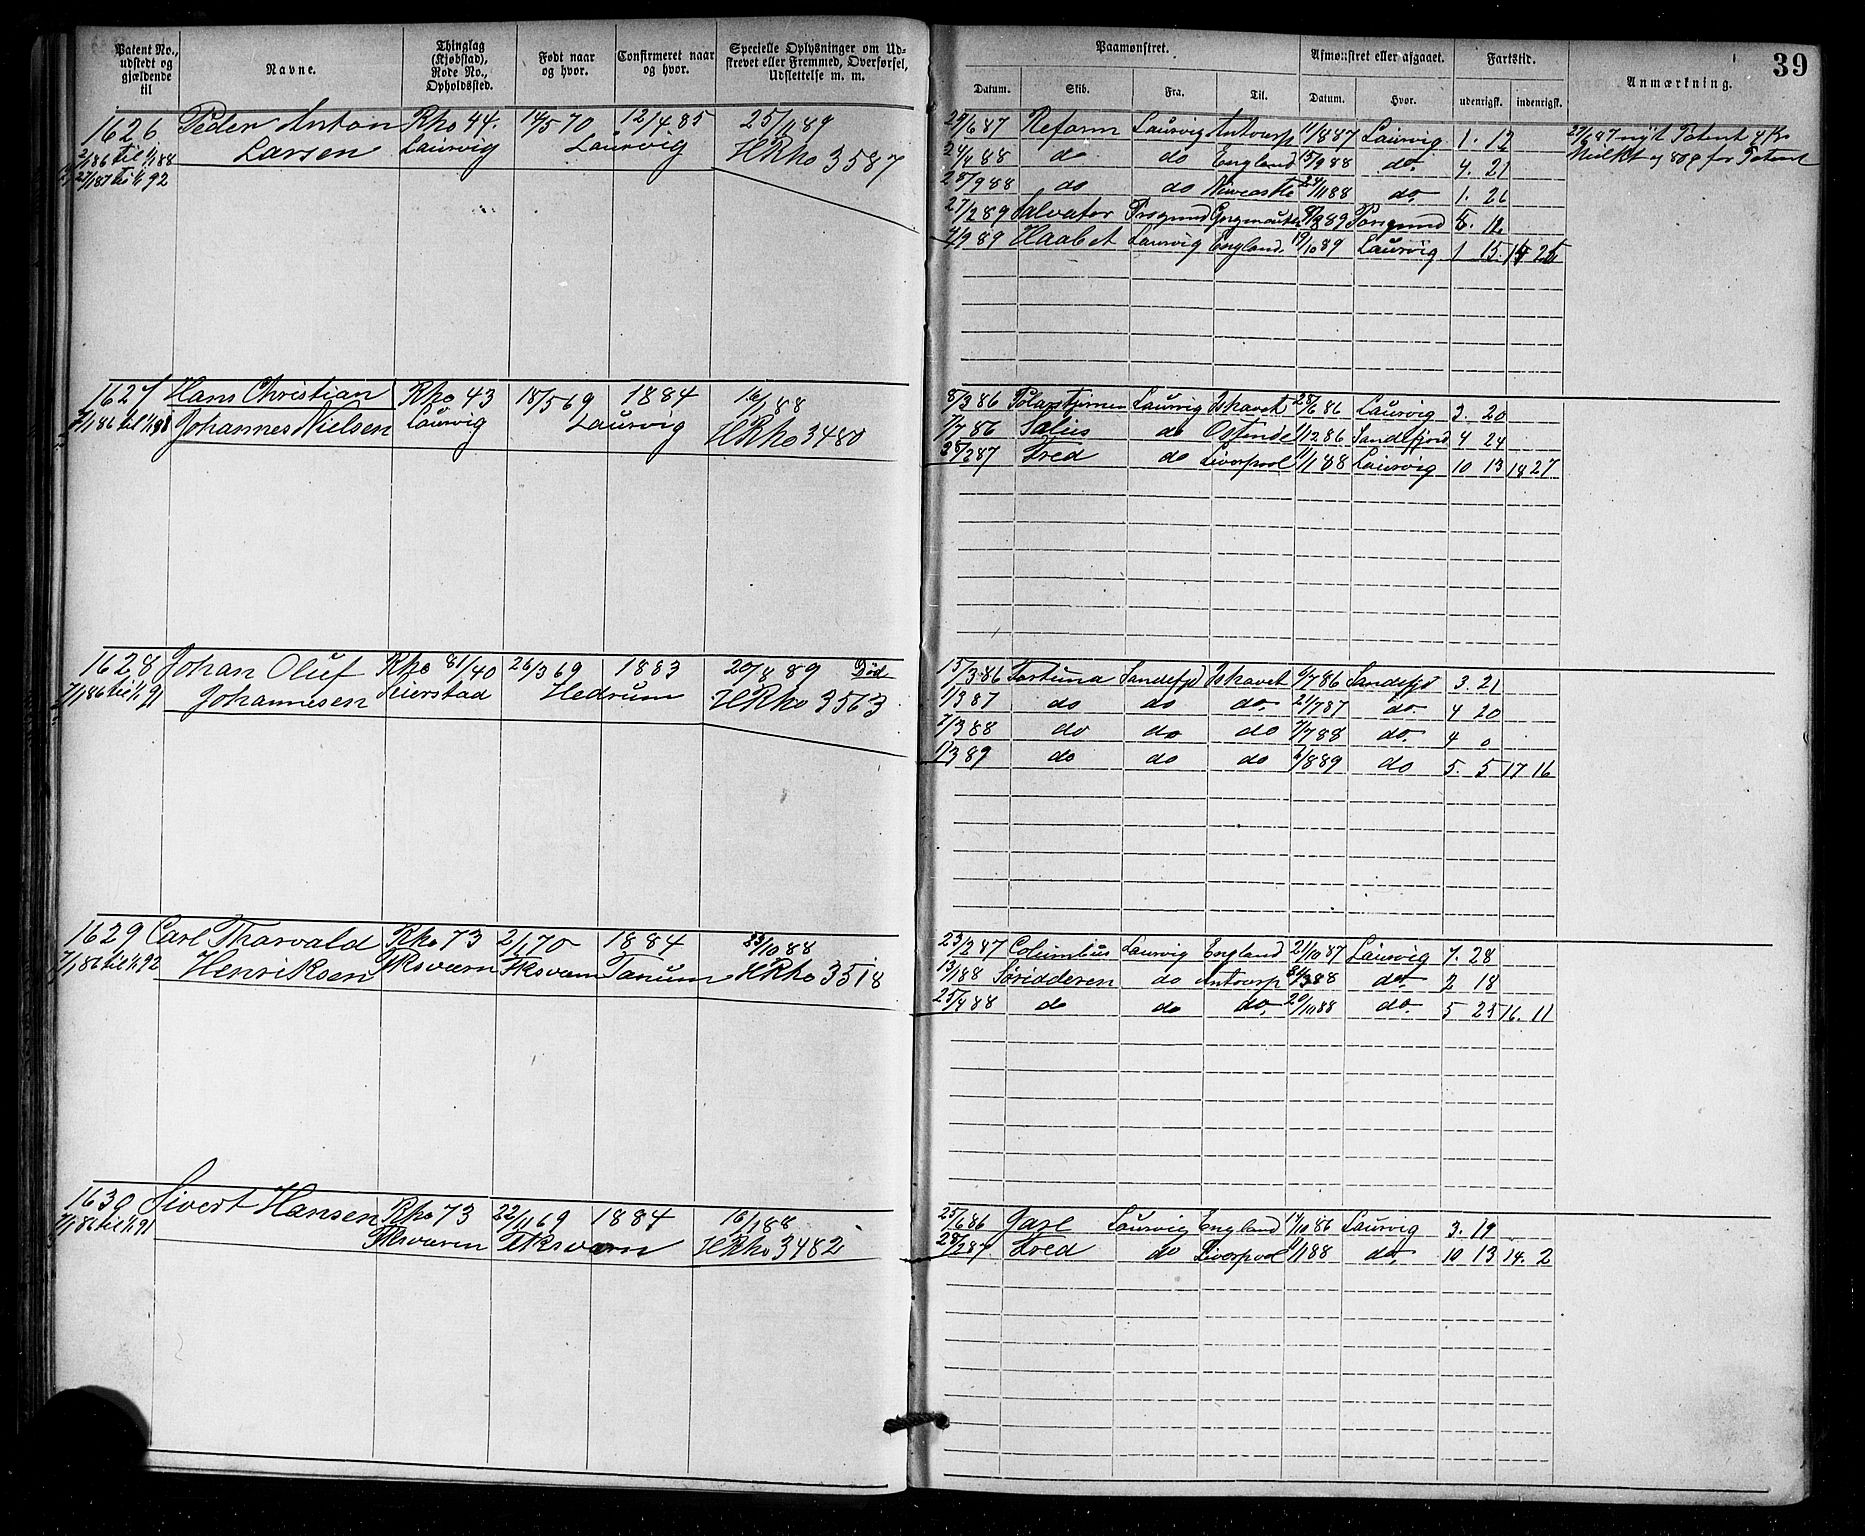 39
Patent No., udstedt og gjældende til
Navne.
Thinglag (Kjøbstad), Rode No., Opholdssted.
Født naar og hvor.
Confirmeret naar og hvor.
Specielle Oplysninger om Udskrevet eller Fremmed, Overførsel, Udslettelse m. m.
Paamønstret.
Afmønstret eller afgaaet.
Fartstid.
Anmærkning.
Datum. Skib. Fra. Til. Datum. Hvor. udenrigsk. indenrigsk.
1626 Peder Anton Rho 44. 14/5 70 12/4 85 25/1 89
Larsen Laurvig Laurvig HRho 3587
2/1 86 til 1/1 88
27/1 87 til 1/1 92
29/6 87 Reform Laurvig Antverp 11/8 87 Laurvig 1. 12
nyt Patent 4 Kr
24/4 88 do do England 15/9 88 do. 4. 21
Mulkt for Patent
25/9 88 do do Newcastle 24/11 88 do. 1. 26
27/2 89 Salvator Prsgrund 89 Porsgrund
4/9 89 Haabet Laurvig England. 19/10 89 Laurvig 1 15.
1627 Hans Christian Rho 43 18/5 69 1884 16/1 88
7/1 86 til 1/1 91 Johannes Nielsen Laurvig Laurvig HRho 3480
8/3 86 Polarstjernen Laurvig Ishavet 28/6 86 Laurvig 3. 20
7/7 86 Salus do Ostende 1/12 86 Sandefjord 4 24
28/2 87 Fred do Liverpool 11/1 88 Laurvig 10 13 18 27
1628 Johan Oluf Rho 81/40 26/3 69 1883 20/8 89 Død
7/1 86 til 1/1 91 Johannesen Seierstad Hedrum HRho 3563
15/3 86 Fortuna Sandefjd Ishavet 6/7 86 Sandefjd 3. 21
1/3 87 do do do. 21/7 87 do. 4 20
7/3 88 do do do 7/7 88 do. 4 0
1/3 89 do do do 6/8 89 do 5. 5 17 16
1629 Carl Thorvald Rho 73 2/1 70 1884 23/10 88
7/1 86 til 1/1 92 Henriksen Fksværn Fksværn Tanum HRho 3518
23/2 87 Columbus Laurvig England 21/10 87 Laurvig 7. 28
13/1 88 Søridderen do Antverp 88 do. 2 18
25/4 88 do do do. 20/10 88 do. 5 25 16. 11
1630 Sivert Hansen Rho 73 22/11 69 1884 16/1 88
7/1 86 til 1/1 91 Fksværn Fksværn HRho 3482
25/6 86 Jarl Laurvig England 14/10 86 Laurvig 3. 19
28/2 87 Fred do Liverpool 11/1 88 do. 10 13 14. 2